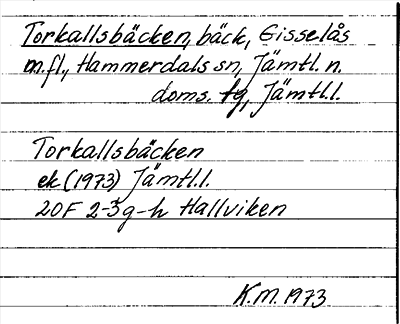 Torkallsbäcken, bäck, Gisselås
m.fl., Hammerdals sn, Jämtl. n.
doms. tg, Jämtl.l.
Torkallsbäcken
ek (1973) Jämtl.l.
20F 2-3g-h Hallviken
K.M. 1973